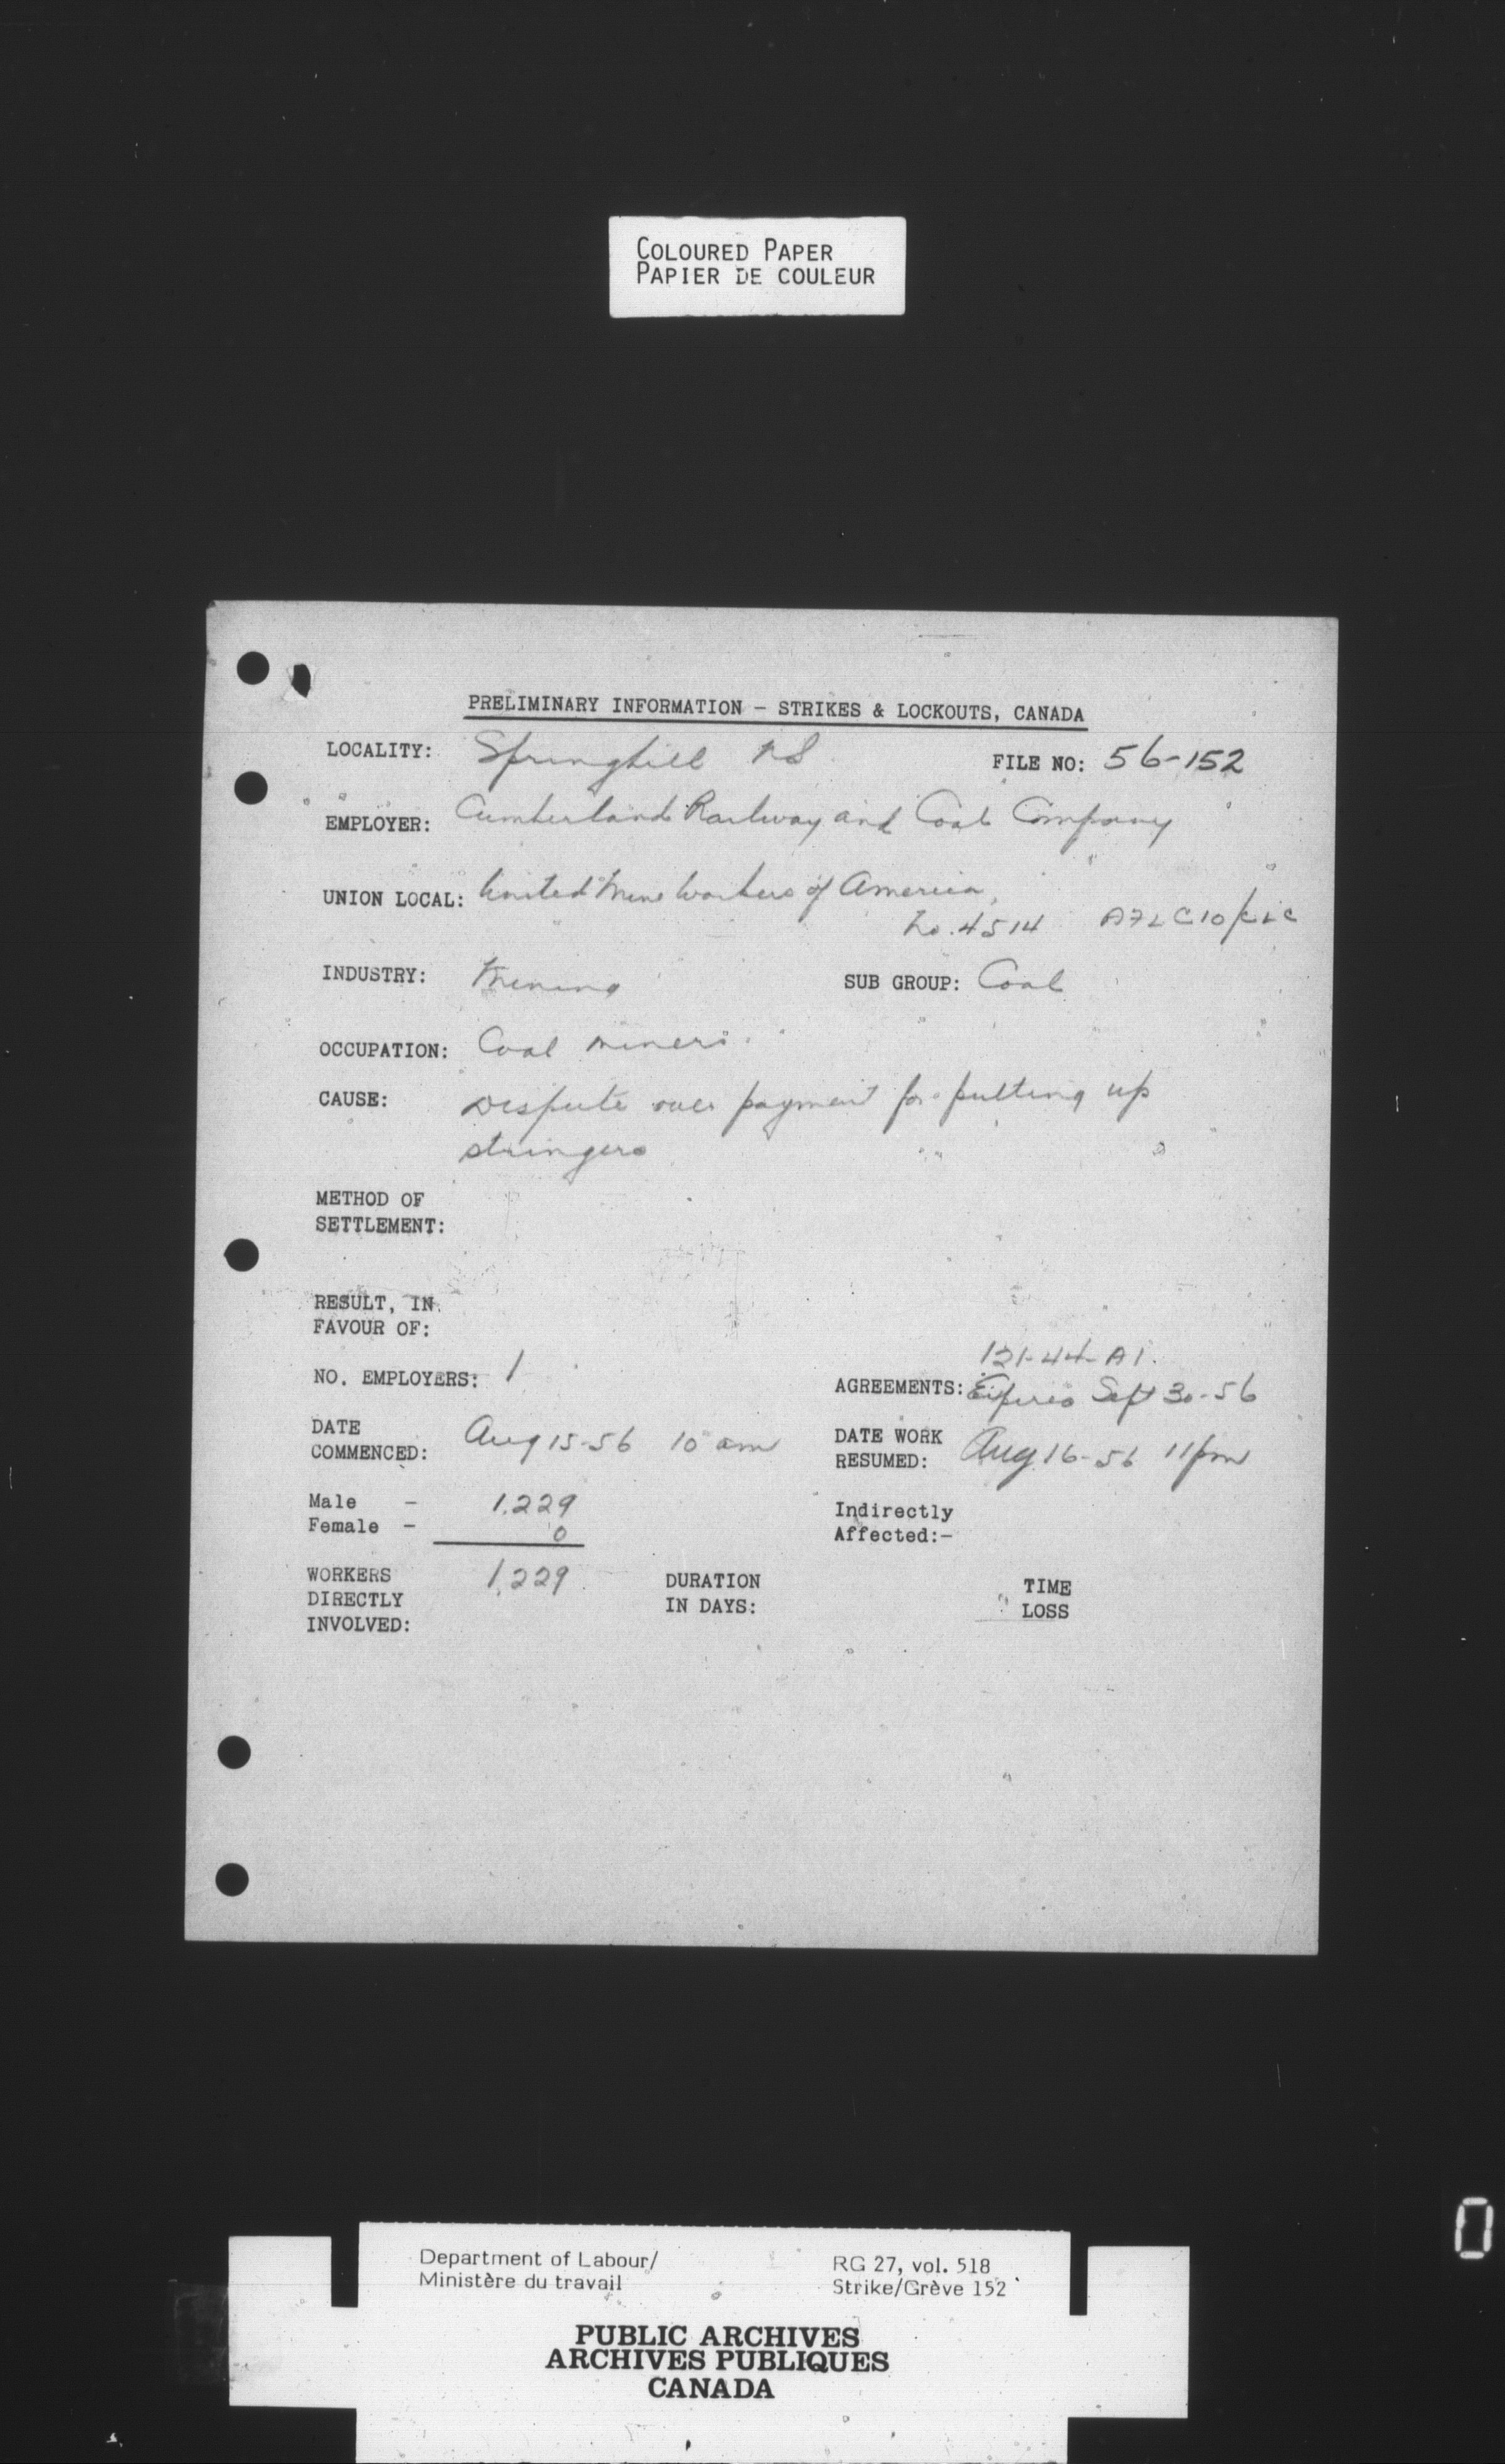 COLOURED PAPER
PAPIER DE COULEUR
PRELIMINARY INFORMATION - STRIKES & LOCKOUTS, CANADA
LOCALITY: Springhill NS FILE NO: 56-152
EMPLOYER: Cumberland Railway and Coal Company
UNION LOCAL: United Mine Workers of America,
Lo. 4514 AFL CIO/CLC
INDUSTRY: Mining SUB GROUP: Coal
OCCUPATION: Coal miners
CAUSE: Dispute over payment for putting up
stringers
METHOD OF
SETTLEMENT:
RESULT, IN
FAVOUR OF:
121-44-A1.
NO. EMPLOYERS: 1 AGREEMENTS: Expires Sept 30-56
DATE
COMMENCED: Aug 15-56 10 am
DATE WORK
RESUMED: Aug 16-56 11 pm
Male - 1,229
Female - 0
Indirectly
Affected:-
WORKERS
DIRECTLY
INVOLVED: 1,229
DURATION
IN DAYS:
TIME
LOSS
Department of Labour/
Ministère du travail
RG 27, vol. 518
Strike/Grève 152
PUBLIC ARCHIVES
ARCHIVES PUBLIQUES
CANADA
0